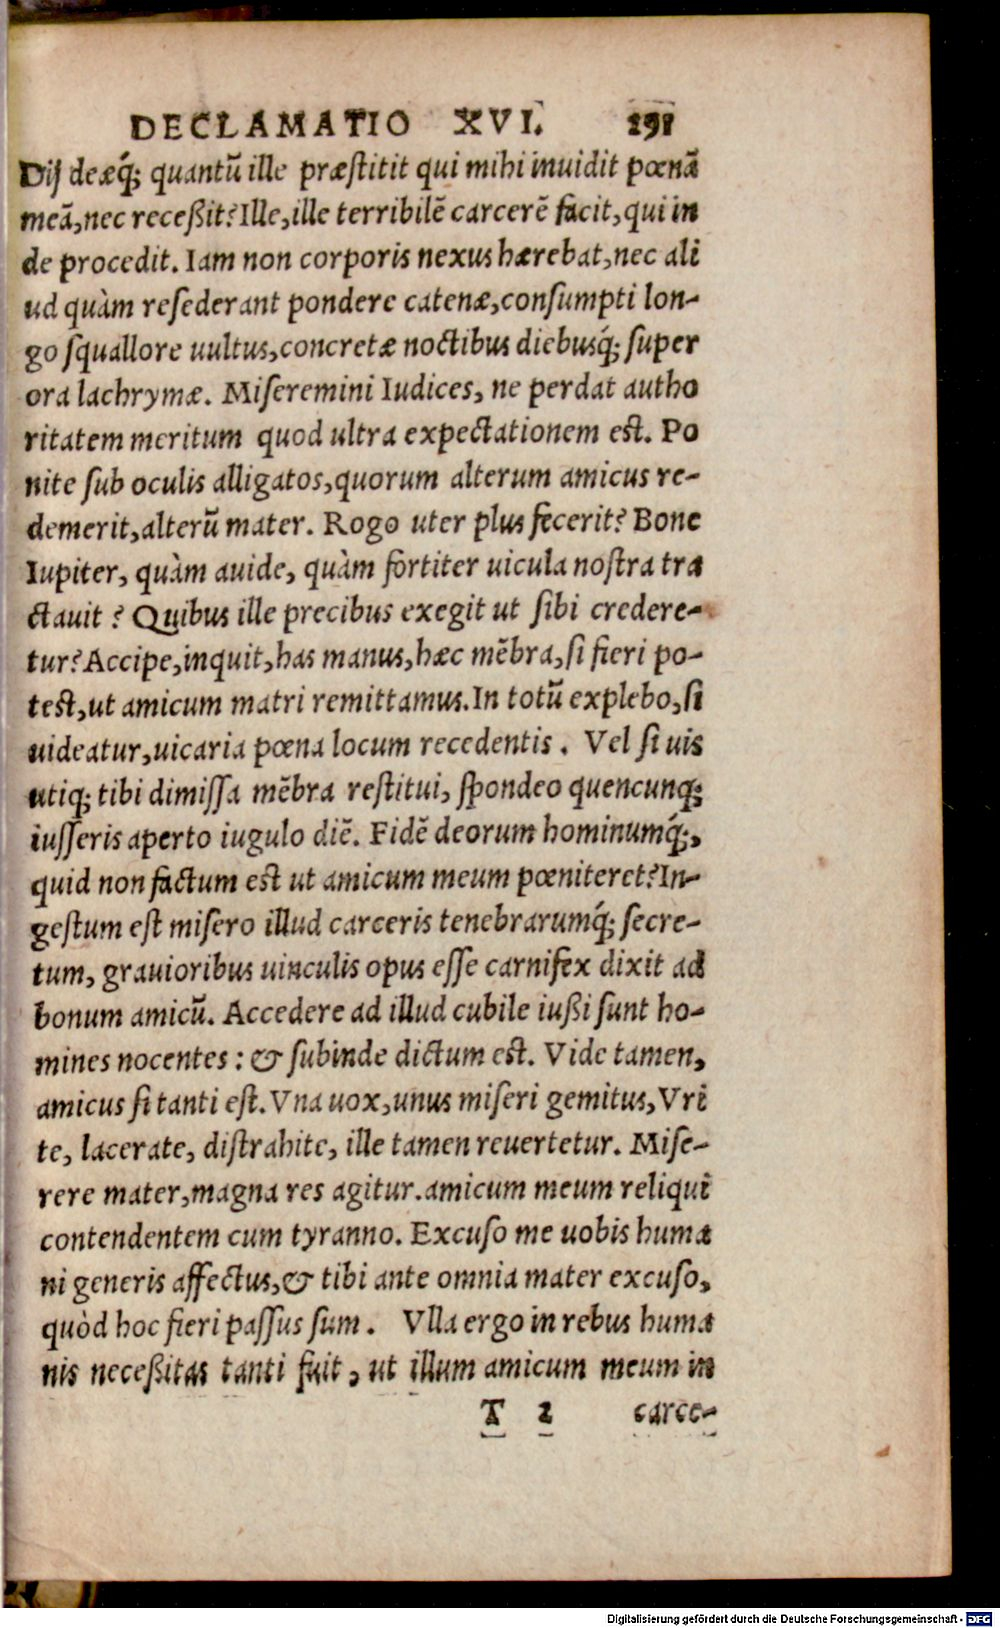 DECLAMATIO XVI. 291
Dij deæq́; quantũ ille præstitit qui mihi inuidit pœnã
meã, nec receßit? Ille, ille terribilẽ carcerẽ facit, qui in
de procedit. Iam non corporis nexus hærebat, nec ali
ud quàm resederant pondere catenæ, consumpti lon-
go squallore uultus, concretæ noctibus diebusq́; super
ora lachrymæ. Miseremini Iudices, ne perdat autho
ritatem meritum quod ultra expectationem est. Po
nite sub oculis alligatos, quorum alterum amicus re-
demerit, alterũ mater. Rogo uter plus fecerit? Bone
Iupiter, quàm auide, quàm fortiter uicula nostra tra
ctauit? Quibus ille precibus exegit ut sibi credere-
tur? Accipe, inquit, has manus, hæc mẽbra, si fieri po-
test, ut amicum matri remittamus. In totũ explebo, si
uideatur, uicaria pœna locum recedentis. Vel si uis
utiq; tibi dimissa mẽbra restitui, spondeo quencunq;
iusseris aperto iugulo diẽ. Fidẽ deorum hominumq́;,
quid non factum est ut amicum meum pœniteret? In-
gestum est misero illud carceris tenebrarumq́; secre-
tum, grauioribus uinculis opus esse carnifex dixit ad
bonum amicũ. Accedere ad illud cubile iußi sunt ho-
mines nocentes: & subinde dictum est. Vide tamen,
amicus si tanti est. Vna uox, unus miseri gemitus, Vri
te, lacerate, distrahite, ille tamen reuertetur. Mise-
rere mater, magna res agitur. amicum meum reliqui
contendentem cum tyranno. Excuso me uobis huma
ni generis affectus, & tibi ante omnia mater excuso,
quòd hoc fieri passus sum. Vlla ergo in rebus huma
nis neceßitas tanti fuit, ut illum amicum meum in
T 2 carce-
Digitalisierung gefördert durch die Deutsche Forschungsgemeinschaft - DFG